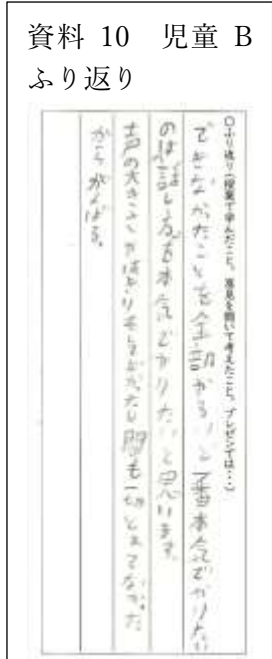 資料 10 児童 B
ふり返り
○ふり返り(授業で学んだこと。意見を聞いて考えたこと。プレゼンでは・・・)
できなかたことを全部がんると一番本気でがりたい
のは話し方も本気でがりたいと思います。
声の大きさとかはっきりもしなかたし間も一切とえてなかた
からがんばる。